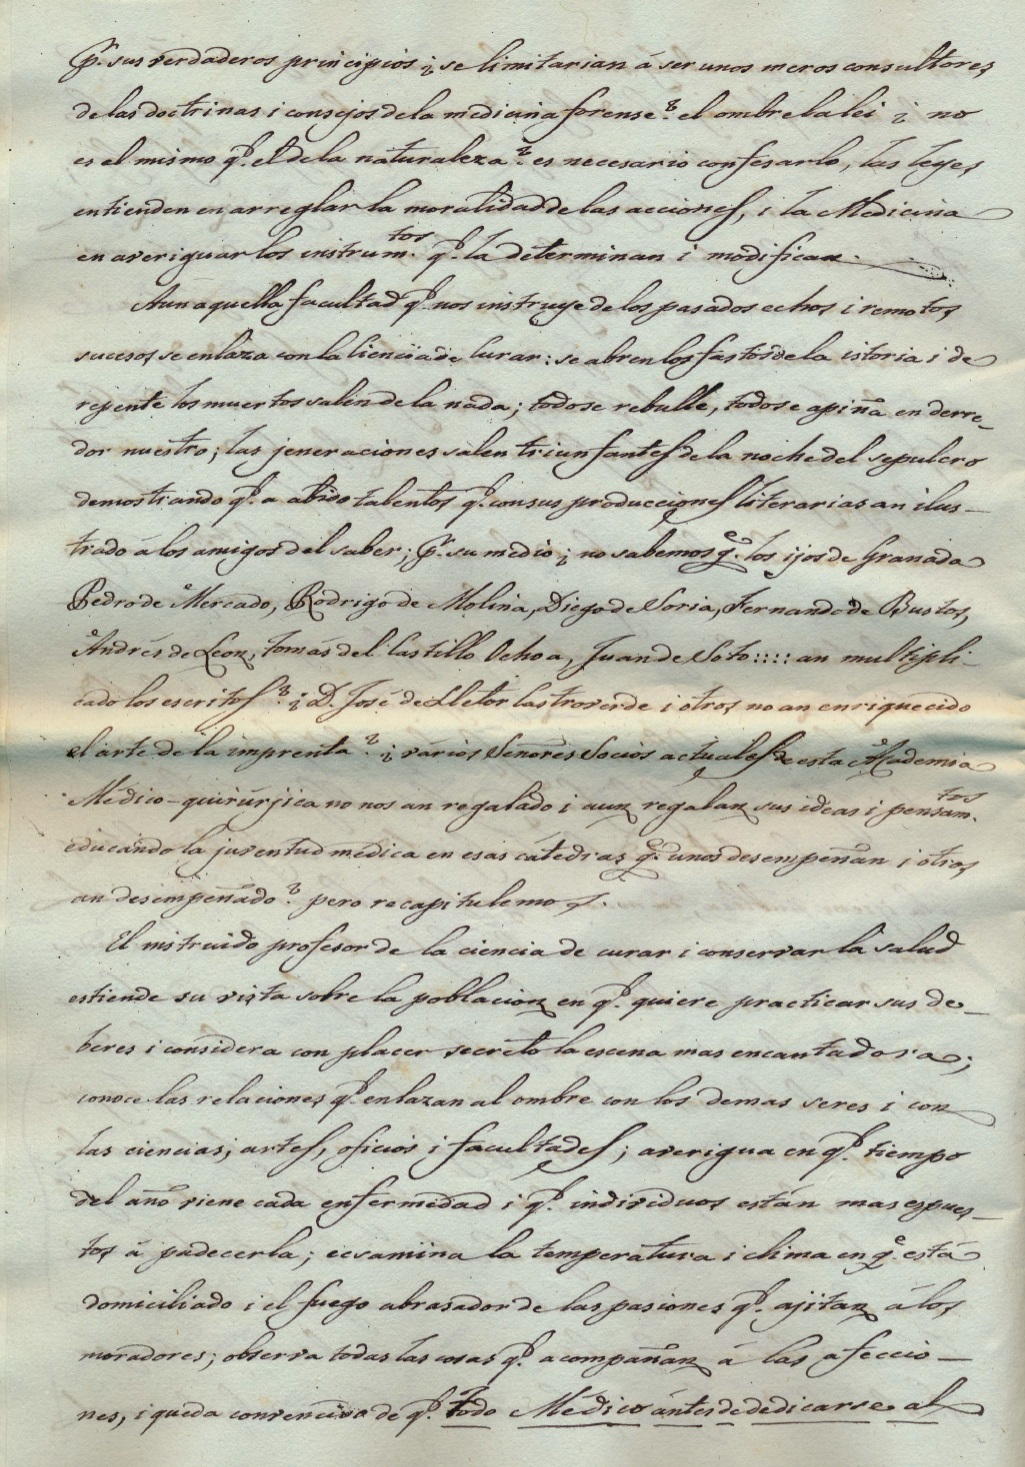 Pr. sus verdaderos principios ¿ se limitarian á ser unos meros consultores
de las doctrinas i consejos de la medicina forense? el ombre la lei ¿ no
es el mismo qe. el de la naturaleza? es necesario confesarlo, las leyes
entienden en arreglar la moralidad de las acciones, i la Medicina
en averiguar los instrum.tos qe. la determinan i modifican.
Aun aquella facultad qe. nos instruye de los pasados echos i remotos
sucesos se enlaza con la ciencia de curar: se abren los fastos de la istoria i de
repente los muertos salen de la nada; todo se rebulle, todo se apiña en derre-
dor nuestro; las jeneraciones salen triunfantes de la noche del sepulcro
demostrando qe. a abido talentos qe. con sus producciones literarias an ilus-
trado á los amigos del saber; Pr. su medio ¿ no sabemos qe. los ijos de Granada
Pedro de Mercado, Rodrigo de Molina, Diego de Soria, Fernando de Bustos,
Andrés de Leon, tomás del Castillo Ochoa, Juan de Soto:::: an multipli-
cado los escritos? ¿ D. José de Lletor Castroverde i otros no an enriquecido
el arte de la imprenta? ¿ varios Señores Socios actuales de esta Academia
Médico-quirúrjica no nos an regalado i aun regalan sus ideas i pensam.tos
educando la juventud médica en esas cátedras qe. unos desempeñan i otros
an desempeñado? pero recapitulemos.
El instruido profesor de la ciencia de curar i conservar la salud
estiende su vista sobre la poblacion en qe. quiere practicar sus de-
beres i considera con placer secreto la escena mas encantadora;
conoce las relaciones qe. enlazan al ombre con los demas seres i con
las ciencias, artes, oficios i facultades; averigua en qe. tiempo
del año viene cada enfermedad i qe. individuos están mas espues-
tos á padecerla; ecsamina la temperatura i clima en qe. está
domiciliado i el fuego abrasador de las pasiones qe. ajitan á los
moradores; observa todas las cosas qe. acompañan á las afeccio-
nes, i queda convencido de qe. todo Médico ántes de dedicarse al